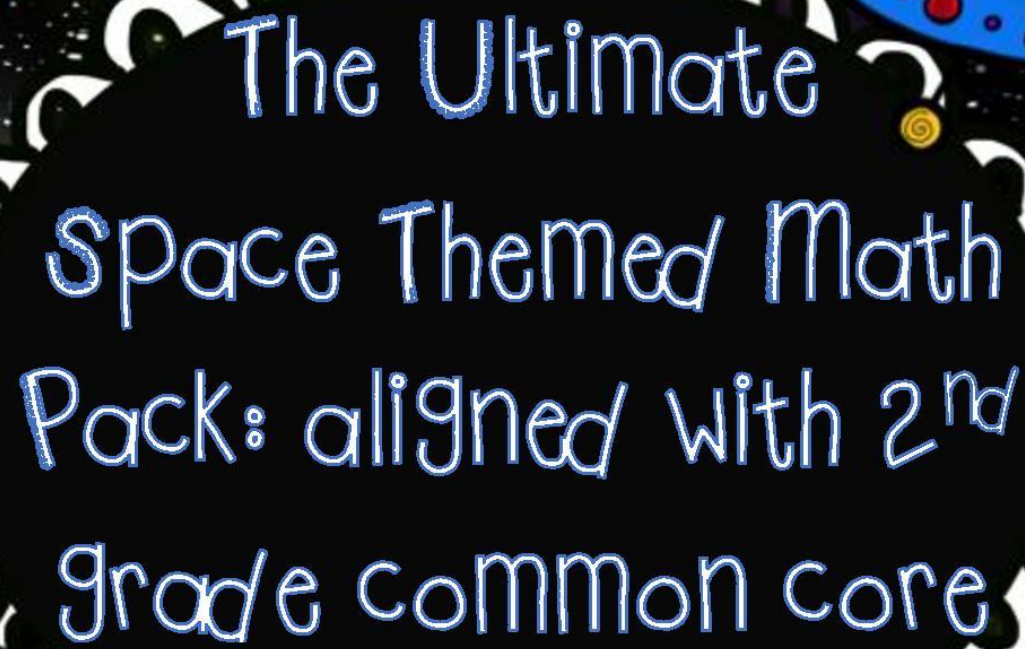 The Ultimate
Space Themed Math
Pack: aligned with 2nd
grade common core